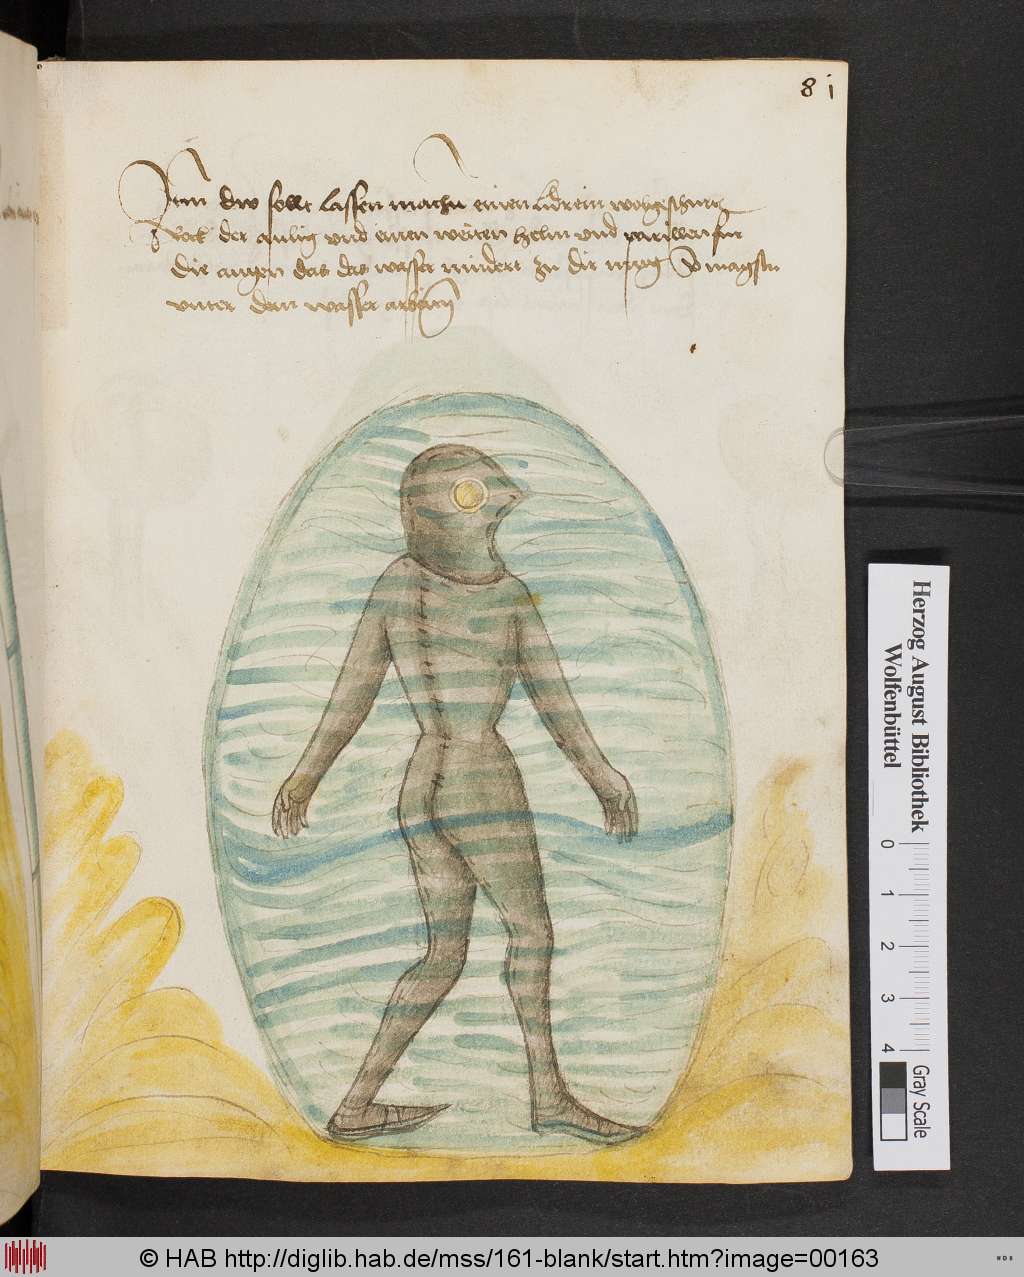 8 i
Item dw sollt lassen machn einen lidrein
Rock der und einen weiten helm und parillen fur
die augen das das wasser nindert zu dir mug So magstu
vnter dem wasser
Herzog August Bibliothek
Wolfenbüttel
0 1 2 3 4
Gray Scale
© HAB http://diglib.hab.de/mss/161-blank/start.htm?image=00163